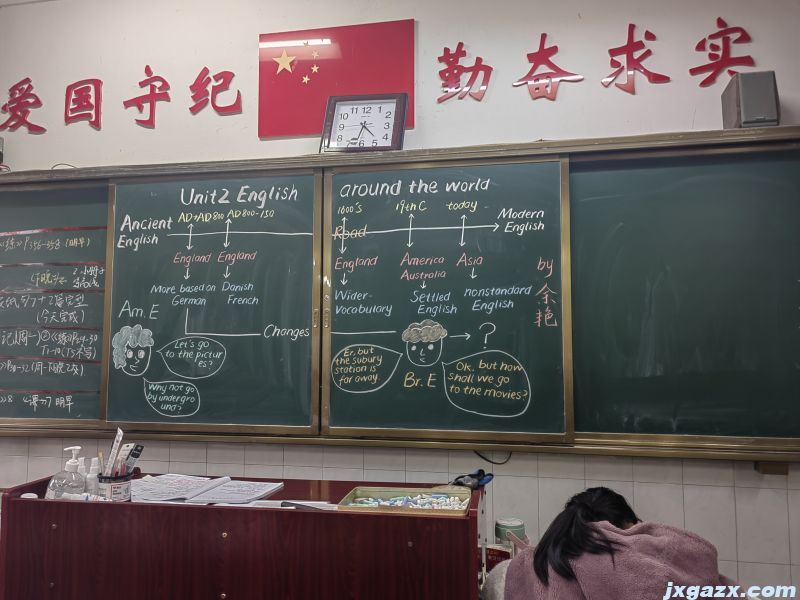 爱国守纪
勤奋求实
Unit2 English around the world
AD→AD800 AD800-150
1600's 19thC today
Ancient English
Road
Modern English
England England
England America Australia Asia
More based on German
Danish French
Wider-Vocabulary
Settled English
nonstandard English
by 余艳
Changes
Am. E
Let's go to the pictures?
Why not go by underground?
Er, but the subury station is far away.
Br. E
?
Ok. but how shall we go to the movies?
(今天完成)
jxgazx.com